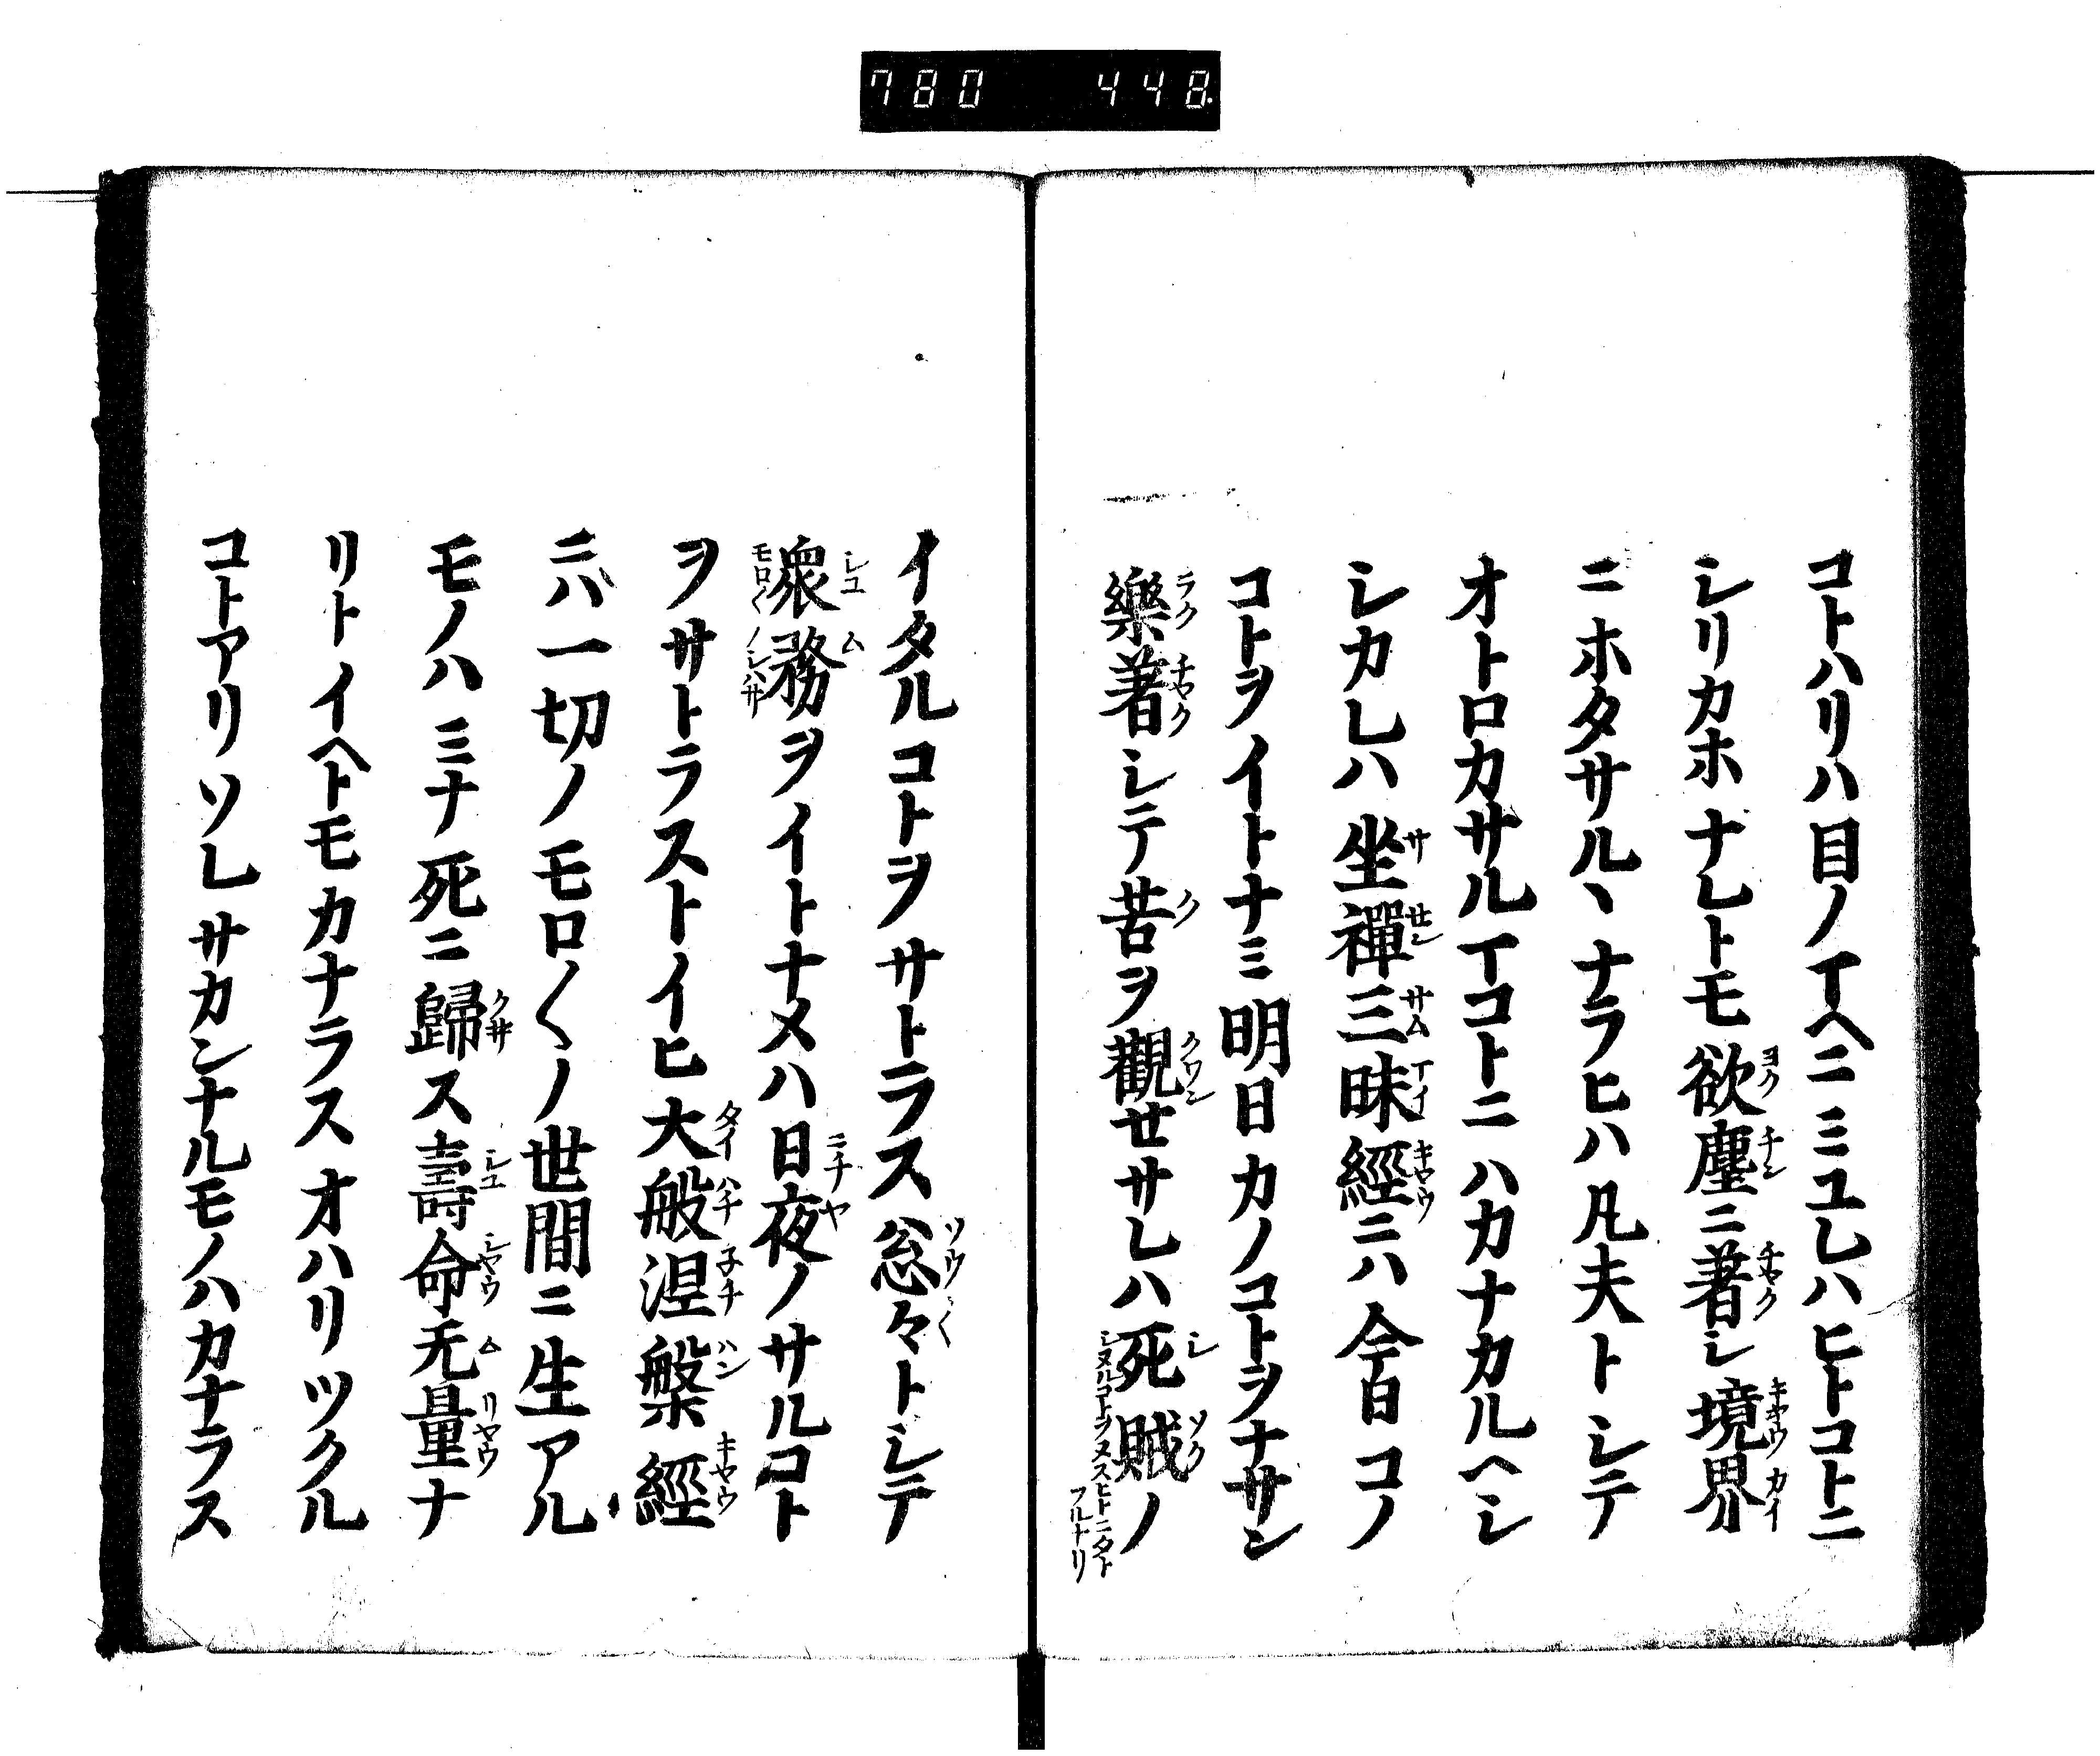 780 448
コトハリハ目ノマヘニミユレハヒトコトニ
シリカホナレトモ欲塵ニ著シ境界
ニホタサルヽナラヒハ凡夫トシテ
オトロカサルマコトニハカナカルヘシ
シカレハ坐禪三昧經ニハ今日コノ
コトヲイトナミ明日カノコトヲナサン
樂著シテ苦ヲ觀セサレハ死賊ノ
イタルコトヲサトラス忩々トシテ
衆務ヲイトナメハ日夜ノサルコト
ヲサトラストイヒ大般涅槃經
ニハ一切ノモロ〱ノ世間ニ生アル
モノハミナ死ニ歸ス壽命无量ナ
リトイヘトモカナラスオハリツクル
コトアリソレサカンナルモノハカナラス